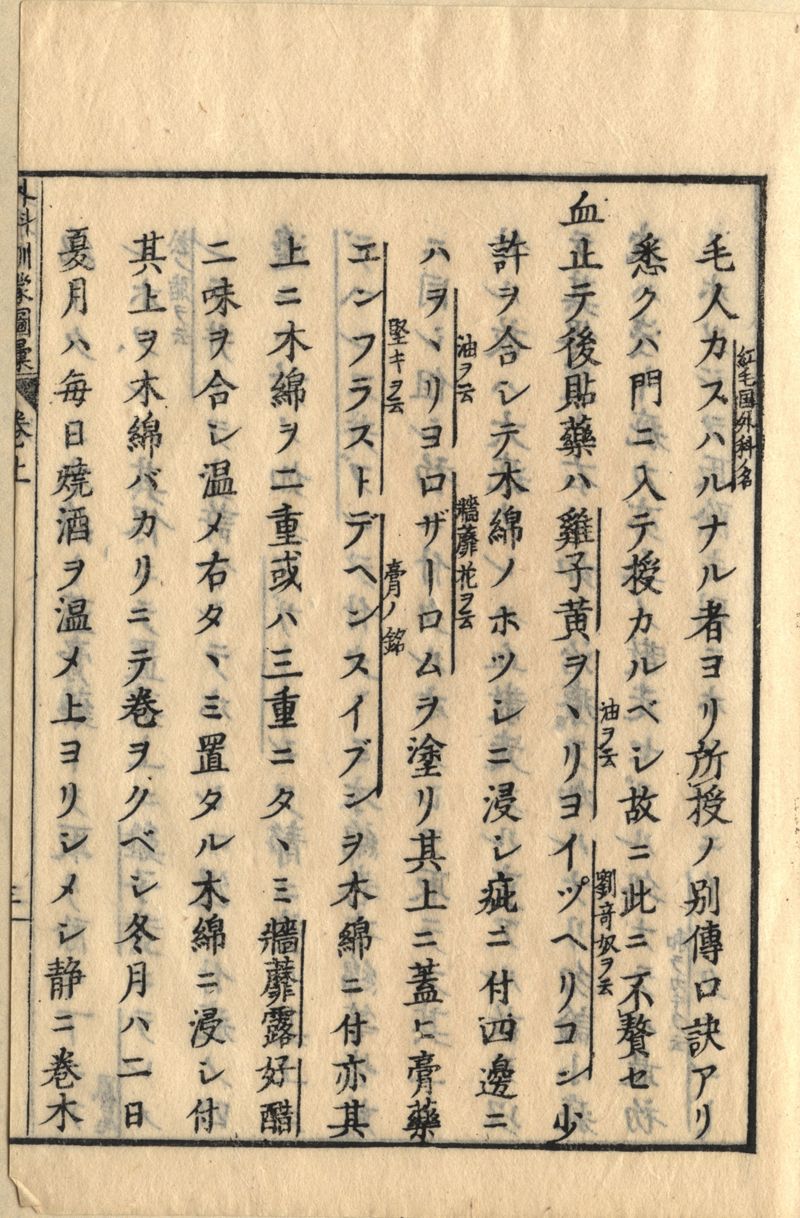 毛人カスハルナル者ヨリ所授ノ別傳口訣アリ
紅毛国外科名
悉クハ門ニ入テ授カルベシ故ニ此ニ不贅セ
血止テ後貼藥ハ雞子黄ヲヽリヨイヅヘリコン少
油ヲ云
劉寄奴ヲ云
許ヲ合シテ木綿ノホツシニ浸シ疵ニ付四邊ニ
ハヲヽリヨロザーロムヲ塗リ其上ニ蓋ヒ膏藥
油ヲ云
牆蘼花ヲ云
エンフラストデヘンスイブシヲ木綿ニ付亦其
堅キヲ云
膏ノ銘
上ニ木綿ヲ二重或ハ三重ニタヽミ牆蘼露好醋
二味ヲ合シ温メ右タヽミ置タル木綿ニ浸シ付
其上ヲ木綿バカリニテ巻ヲクベシ冬月ハ二日
夏月ハ毎日燒酒ヲ温メ上ヨリシメシ静ニ巻木
外科訓蒙圖彙 巻上
三